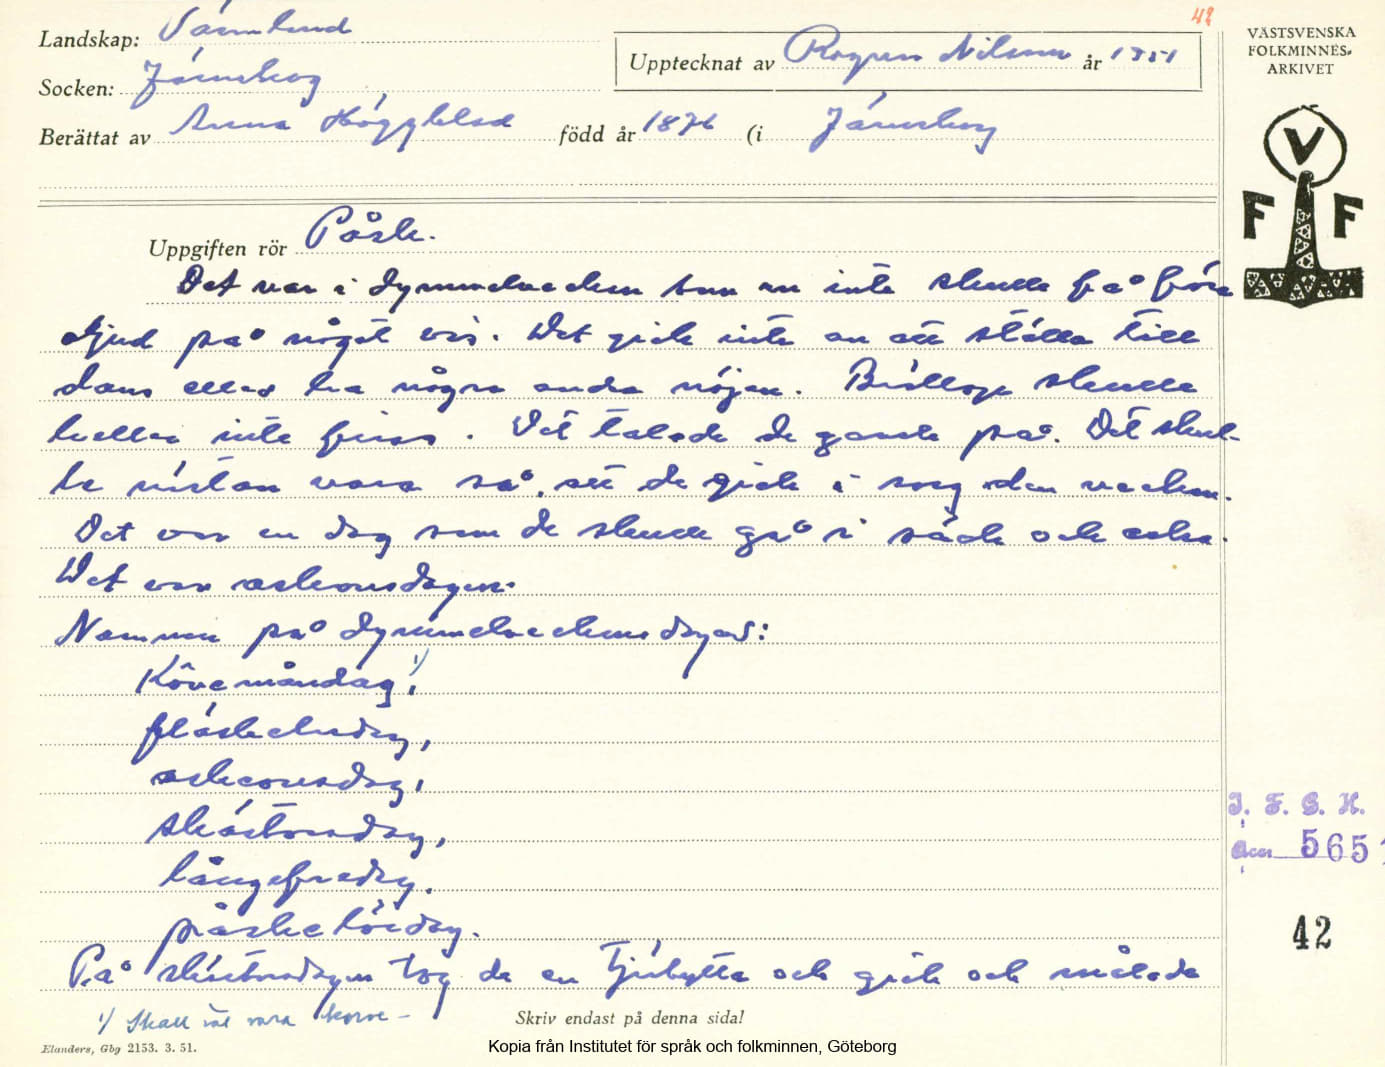 42
Landskap: Värmland
Socken: Järnskog
Upptecknat av Ragnar Nilsson år 1951
Berättat av Anna Höggblad född år 1876 (i Järnskog
VÄSTSVENSKA
FOLKMINNES-
ARKIVET
V
F F
Uppgiften rör Påsk.
Det var i dymmelveckan som en inte skulle få föra
ljud på något vis. Det gick inte an att ställa till
dans eller ha några andra nöjen. Bröllop skulle
heller inte finns. Det talade de gamla på. Det skul-
le nästan vara så, att de gick i sorg den veckan.
Det var en dag som de skulle gå i säck och aska.
Det var askonsdagen.
Namnen på dymmelveckans dagar:
Kôvemåndag, 1/
fläsketisdag,
askeonsdag,
skärtorsdag,
långefredag,
påskelördag.
På skärtorsdagen tog de en tjärbytta och gick och målade
1/ Skall väl vara korve-
Skriv endast på denna sida!
Elanders, Gbg 2153. 3. 51.
Kopia från Institutet för språk och folkminnen, Göteborg
I. F. G. H.
Acc 5651
42